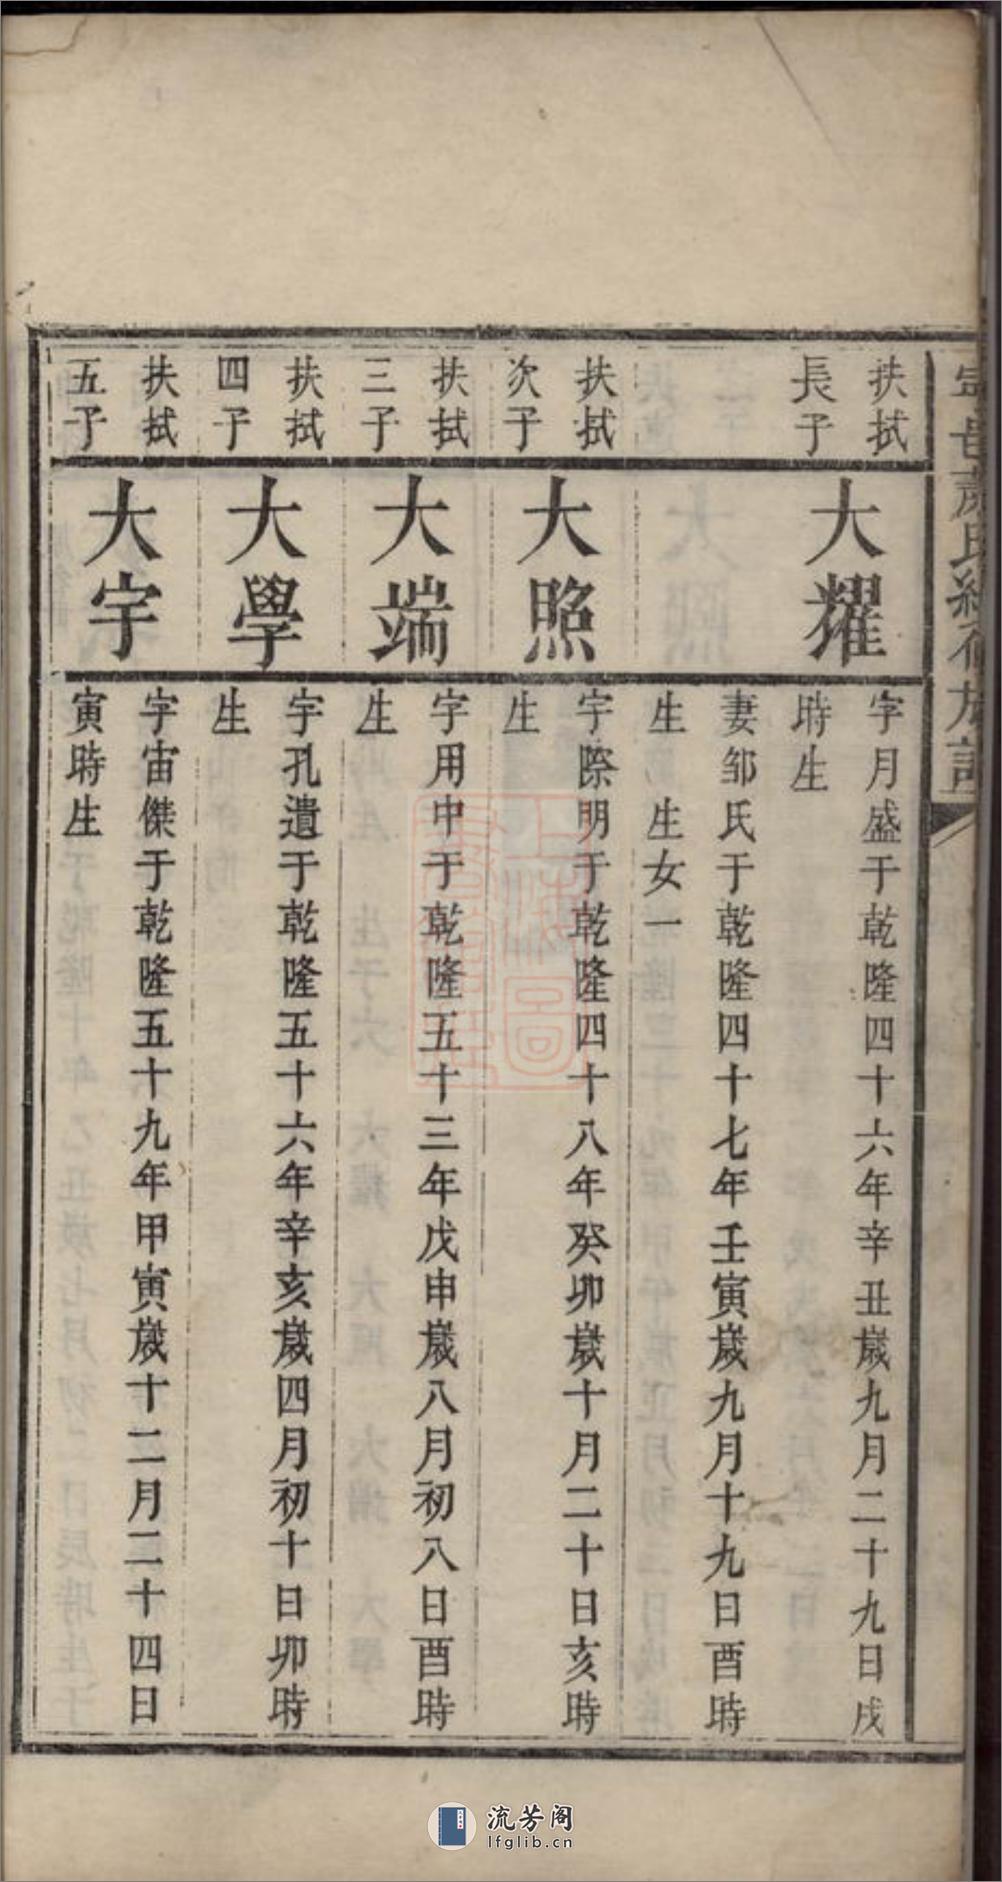 扶拭
長子
大耀
字月盛于乾隆四十六年辛丑歲九月二十九日戌
時生
妻邹氏于乾隆四十七年壬寅歲九月十九日酉時
生　生女一
扶拭
次子
大照
字際明于乾隆四十八年癸卯歲十月二十日亥時
生
扶拭
三子
大端
字用中于乾隆五十三年戊申歲八月初八日酉時
生
扶拭
四子
大學
字孔遺于乾隆五十六年辛亥歲四月初十日卯時
生
扶拭
五子
大宇
字宙傑于乾隆五十九年甲寅歲十二月二十四日
寅時生
流芳阁
lfglib.cn